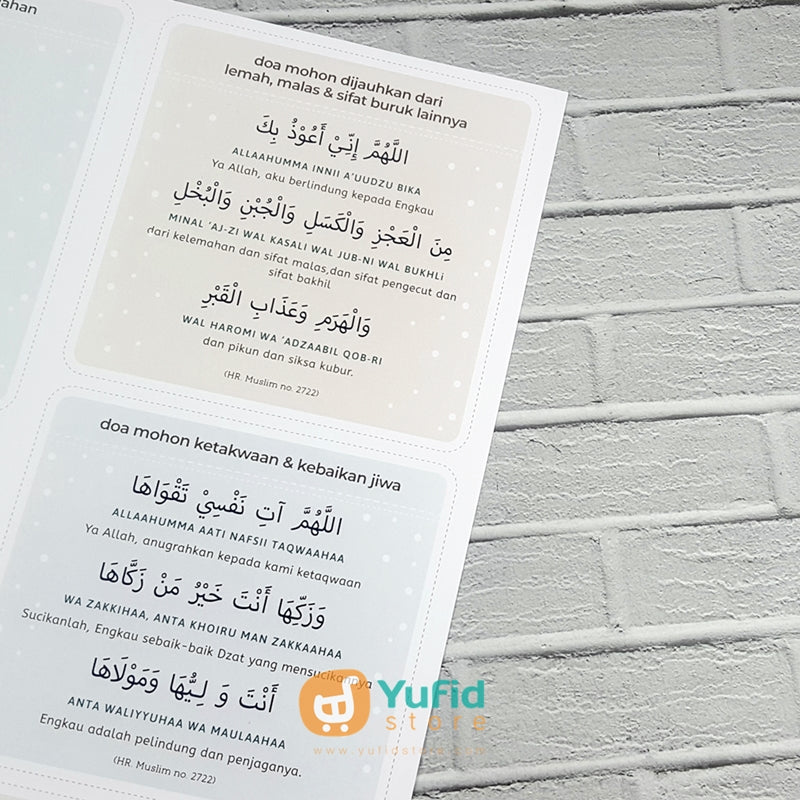 doa mohon dijauhkan dari
lemah, malas & sifat buruk lainnya
اللَّهُمَّ إِنِّيْ أَعُوْذُ بِكَ
ALLAAHUMMA INNII A'UUDZU BIKA
Ya Allah, aku berlindung kepada Engkau
مِنَ الْعَجْزِ وَالْكَسَلِ وَالْجُبْنِ وَالْبُخْلِ
MINAL 'AJ-ZI WAL KASALI WAL JUB-NI WAL BUKHLi
dari kelemahan dan sifat malas,dan sifat pengecut dan
sifat bakhil
وَالْهَرَمِ وَعَذَابِ الْقَبْرِ
WAL HAROMI WA 'ADZAABIL QOB-RI
dan pikun dan siksa kubur.
(HR. Muslim no. 2722)
doa mohon ketakwaan & kebaikan jiwa
اللَّهُمَّ آتِ نَفْسِيْ تَقْوَاهَا
ALLAAHUMMA AATI NAFSII TAQWAAHAA
Ya Allah, anugrahkan kepada kami ketaqwaan
وَزَكِّهَا أَنْتَ خَيْرُ مَنْ زَكَّاهَا
WA ZAKKIHAA, ANTA KHOIRU MAN ZAKKAAHAA
Sucikanlah, Engkau sebaik-baik Dzat yang mensucikannya
أَنْتَ وَ لِيُّهَا وَمَوْلَاهَا
ANTA WALIYYUHAA WA MAULAAHAA
Engkau adalah pelindung dan penjaganya.
(HR. Muslim no. 2722)
Yufid
store